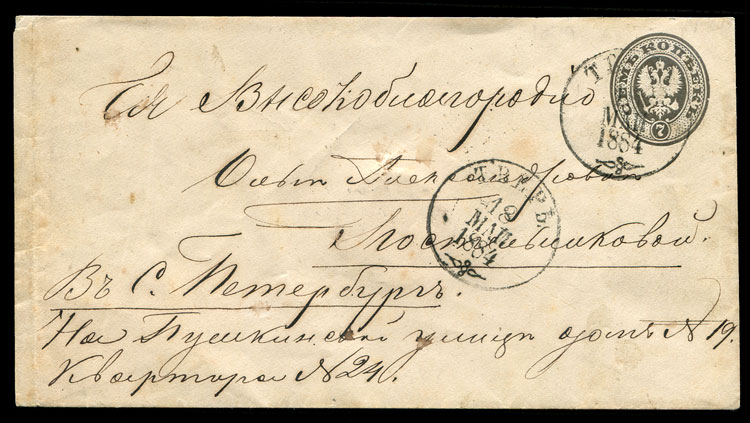 СЕМЬ КОПѢЕКЪ
7
Ея Высокоблагородію
МАЯ
1884
Ольгѣ Александровнѣ
ТВЕРЬ.
18
МАЯ
1884
Постельниковой.
Въ С. Петербургъ.
На Пушкинской улицѣ домъ N 19.
Квартира N 24.